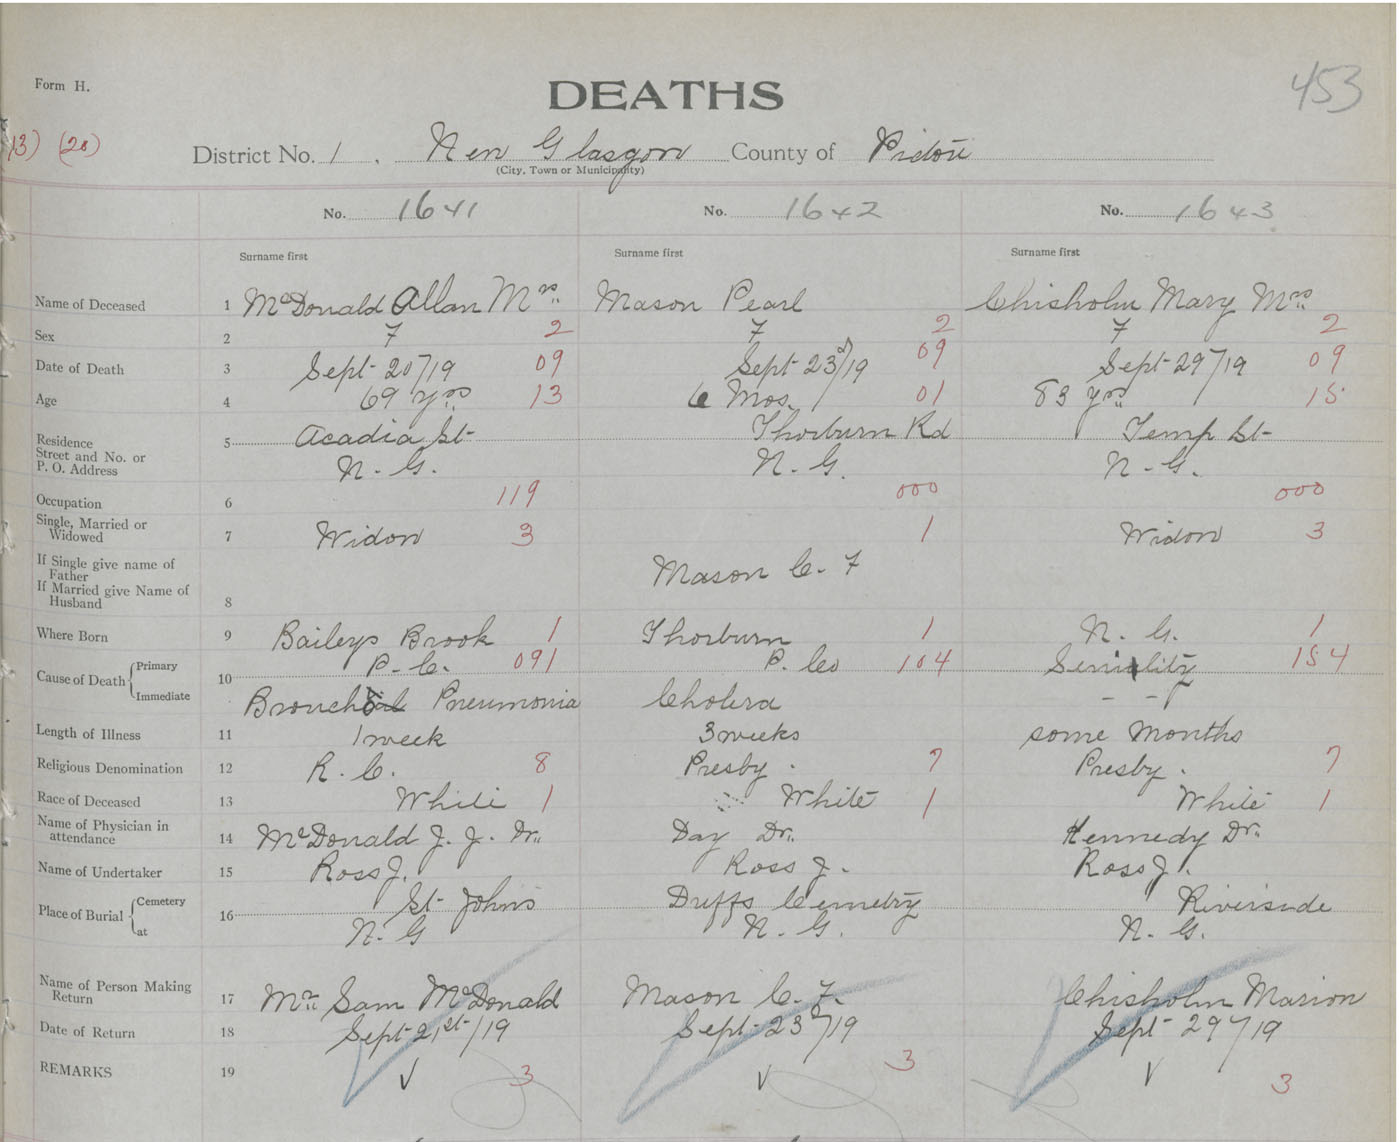 Form H.
DEATHS
453
13) (20)
District No. 1. New Glasgow County of Pictou
(City, Town or Municipality)
No. 1641 No. 1642 No. 1643
Surname first Surname first Surname first
Name of Deceased 1 McDonald Allan Mrs. Mason Pearl Chisholm Mary Mrs.
Sex 2 F 2 F 2 F 2
Date of Death 3 Sept 20/19 09 Sept 23d/19 09 Sept 29/19 09
Age 4 69 yrs. 13 6 Mos. 01 83 yrs. 15
Residence 5 Acadia St Thorburn Rd Temp St
Street and No. or
P. O. Address N. G. N. G. N. G.
Occupation 6 119 000 000
Single, Married or
Widowed 7 Widow 3 1 Widow 3
If Single give name of
Father Mason C. F
If Married give Name of
Husband 8
Where Born 9 Baileys Brook 1 Thorburn 1 N. G. 1
P. C. 091 P. Co 104
Cause of Death Primary 10 Senility 154
Immediate Bronchial Pneumonia Cholera - -
Length of Illness 11 1 week 3 weeks some months
Religious Denomination 12 R. C. 8 Presby. 7 Presby. 7
Race of Deceased 13 White 1 White 1 White 1
Name of Physician in
attendance 14 McDonald J. J. Dr. Day Dr. Kennedy Dr.
Name of Undertaker 15 Ross J. Ross J. Ross J.
Place of Burial Cemetery 16 St Johns Duffs Cemetry Riverside
at N. G N. G. N. G.
Name of Person Making
Return 17 Mr. Sam McDonald Mason C. F. Chisholm Marion
Date of Return 18 Sept 21st/19 Sept 23d/19 Sept 29/19
REMARKS 19 3 3 3